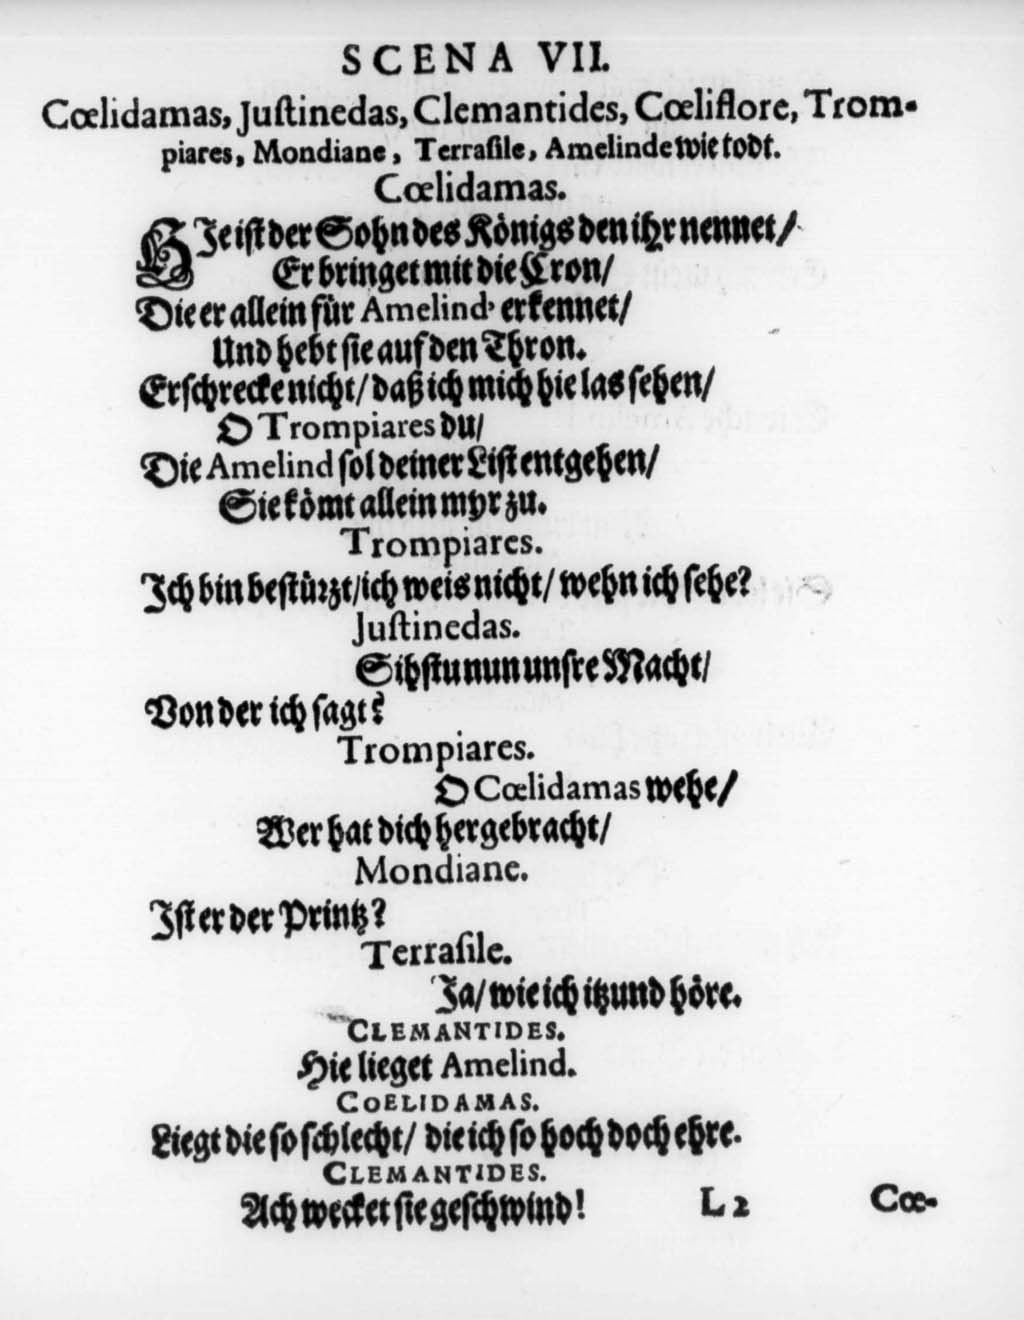 SCENA VII.
Cœlidamas, Juſtinedas, Clemantides, Cœliflore, Trom-
piares, Mondiane, Terraſile, Amelinde wie todt.
Cœlidamas.
HJe iſt der Sohn des Königs den ihr nennet/
Er bringet mit die Cron/
Die er allein für Amelind' erkennet/
Und hebt ſie auf den Thron.
Erſchrecke nicht/ daß ich mich hie las ſehen/
O Trompiares du/
Die Amelind ſol deiner Liſt entgehen/
Sie kömt allein myr zu.
Trompiares.
Jch bin beſtürzt/ ich weis nicht/ wehn ich ſehe?
Juſtinedas.
Sihſtu nun unſre Macht/
Von der ich ſagt?
Trompiares.
O Cœlidamas wehe/
Wer hat dich hergebracht/
Mondiane.
Jſt er der Printz?
Terraſile.
Ja/ wie ich itzund höre.
CLEMANTIDES.
Hie lieget Amelind.
COELIDAMAS.
Liegt die ſo ſchlecht/ die ich ſo hoch doch ehre.
CLEMANTIDES.
Ach wecket ſie geſchwind!
L 2 Cœ-